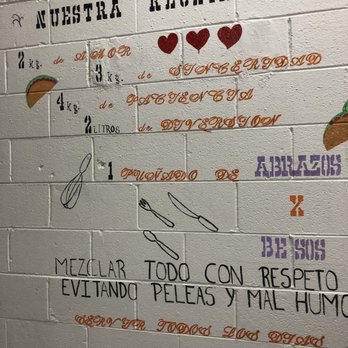 NUESTRA
2 KG. de AMOR
3 KG. de SINCERIDAD
4 KG. de PACIENCIA
2 LITROS de DIVERSION
1 PUÑADO DE ABRAZOS
X
BESOS
MEZCLAR TODO CON RESPETO
EVITANDO PELEAS Y MAL HUMO
SERVIR TODOS LOS DIAS